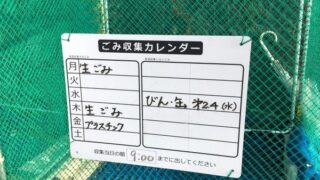 ごみ収集カレンダー
月 生ごみ
火
水
木 生ごみ
金 プラスチック
土
びん・缶 第2 4(水)
収集当日の朝 9:00 までに出してください